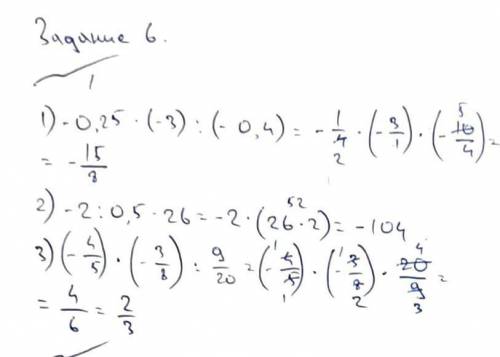 Задание 6.
1
1) - 0,25 · (-3) : (- 0,4) = - 1/4 2 · (- 3/1) · (- 10 5/4) =
= - 15/8
2) -2 : 0,5 · 26 = -2 · (26 · 2) 52 = -104
3) (- 4/5) · (- 3/8) : 9/20 = (- 4 1/5 1) · (- 3 1/8 2) · 20 4/9 3 =
= 4/6 = 2/3